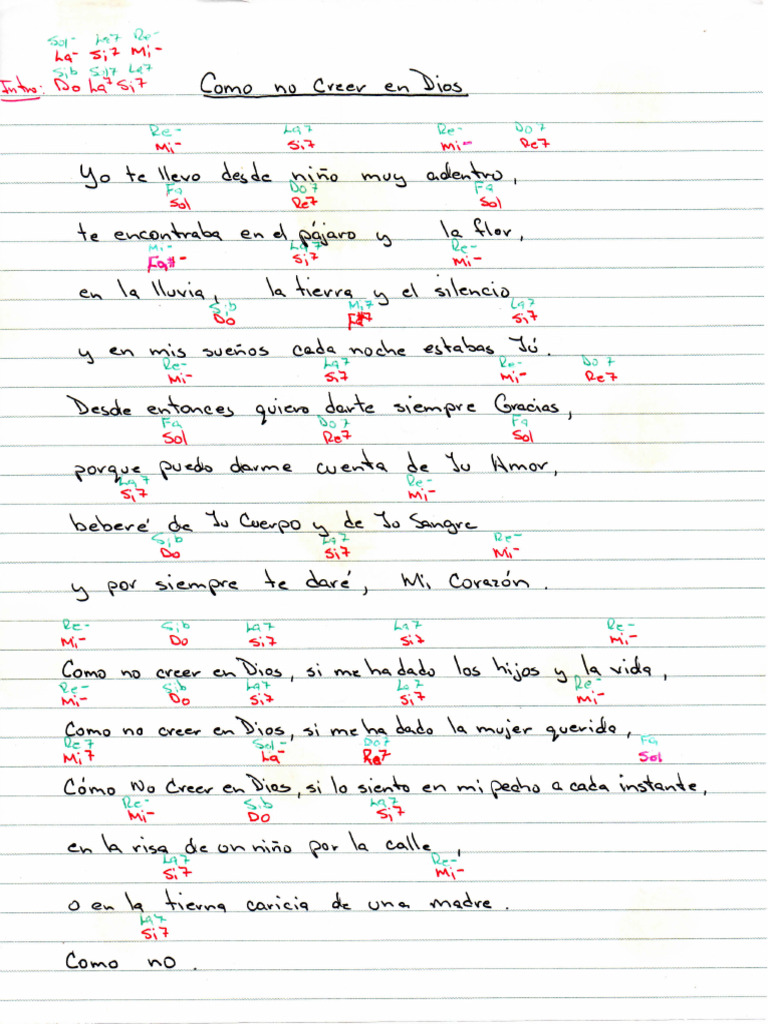 Sol- La7 Re-
La- Si7 Mi-
Sib Sol7 La7
Intro: Do La7 Si7 Como no Creer en Dios
Re- La7 Re- Do7
Mi- Si7 Mi- Re7
Yo te llevo desde niño muy adentro,
Fa Do7 Fa
Sol Re7 Sol
te encontraba en el pájaro y la flor,
Mi- La7 Re-
Fa#- Si7 Mi-
en la lluvia, la tierra y el silencio
Sib Mi7 La7
Do Fa#7 Si7
y en mis sueños cada noche estabas Tú.
Re- La7 Re- Do7
Mi- Si7 Mi- Re7
Desde entonces quiero darte siempre Gracias,
Fa Do7 Fa
Sol Re7 Sol
porque puedo darme cuenta de Tu Amor,
La7 Re-
Si7 Mi-
beberé de Tu Cuerpo y de Tu Sangre
Sib La7 Re-
Do Si7 Mi-
y por siempre te daré, Mi Corazón.
Re- Sib La7 La7 Re-
Mi- Do Si7 Si7 Mi-
Como no creer en Dios, si me ha dado los hijos y la vida,
Re- Sib La7 La7 Re-
Mi- Do Si7 Si7 Mi-
Como no creer en Dios, si me ha dado la mujer querida,
Re7 Sol- Do7 Fa
Mi7 La- Re7 Sol
Cómo No Creer en Dios, si lo siento en mi pecho a cada instante,
Re- Sib La7
Mi- Do Si7
en la risa de un niño por la calle,
La7 Re-
Si7 Mi-
o en la tierna caricia de una madre.
La7
Si7
Como no.